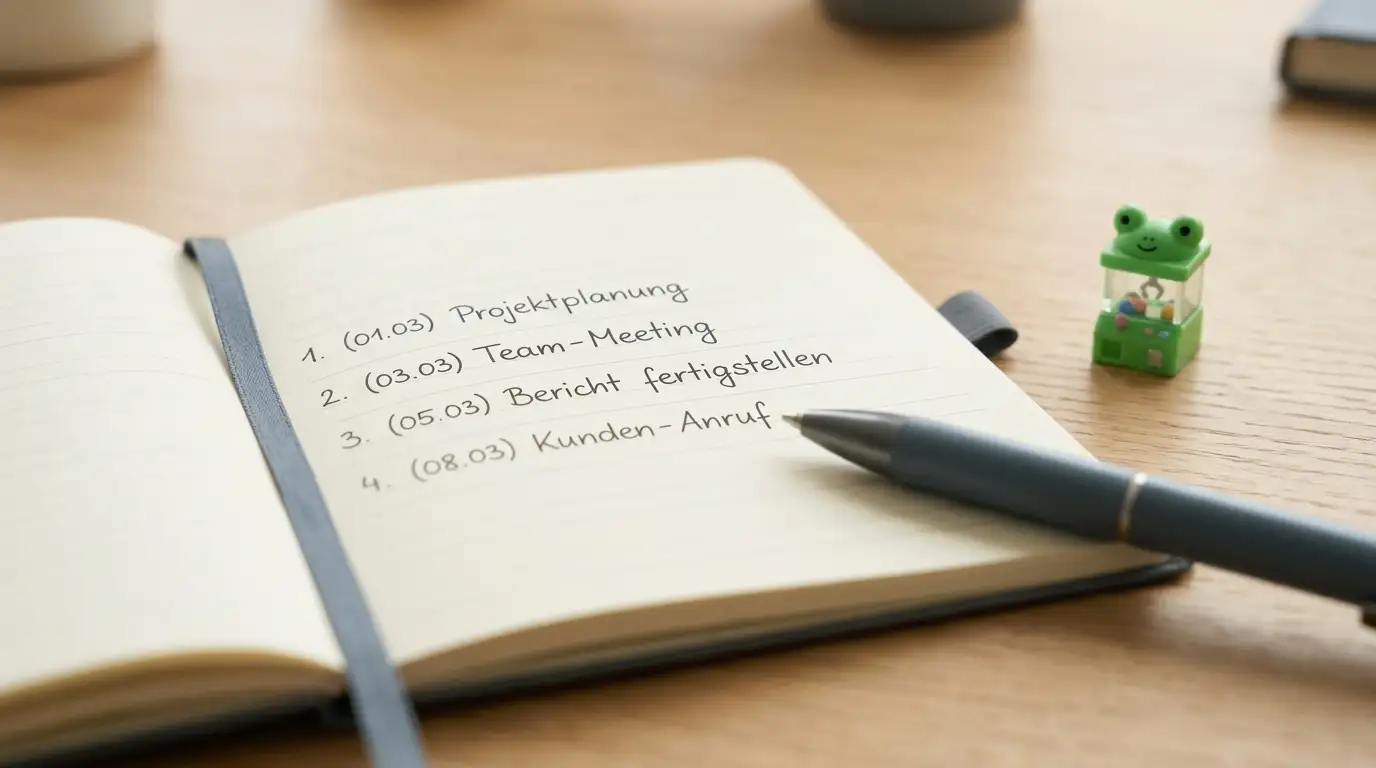 1. (01.03) Projektplanung
2. (03.03) Team-Meeting
3. (05.03) Bericht fertigstellen
4. (08.03) Kunden-Anruf